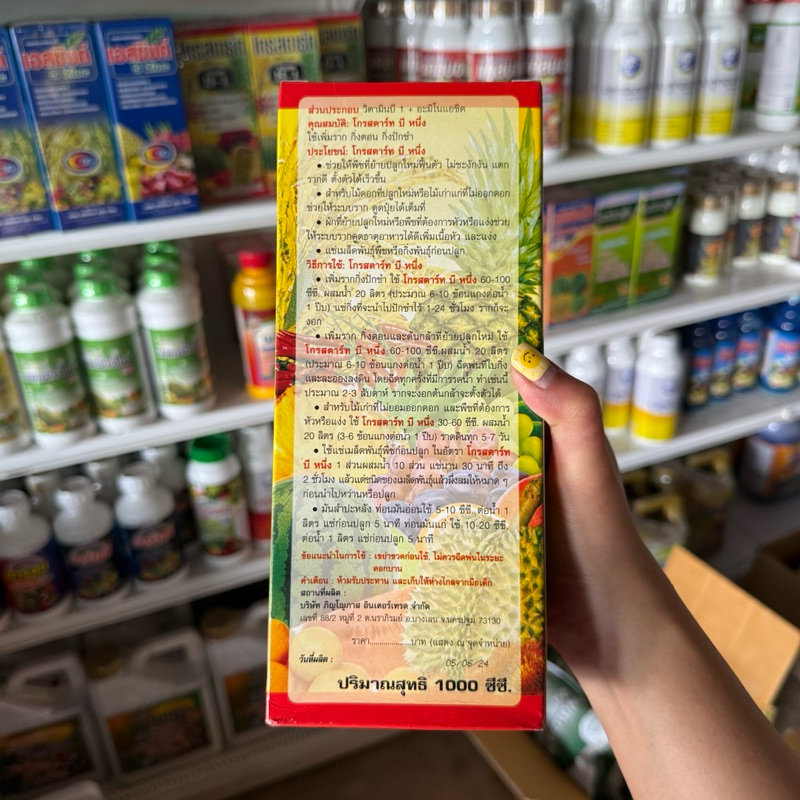 ส่วนประกอบ วิตามินบี 1 + อะมิโนแอซิด
คุณสมบัติ: โกรสตาร์ท บี หนึ่ง
ใช้เพิ่มราก กิ่งตอน กิ่งปักชำ
ประโยชน์: โกรสตาร์ท บี หนึ่ง
• ช่วยให้พืชที่ย้ายปลูกใหม่ฟื้นตัว ไม่ชะงักงัน แตก
รากดี ตั้งตัวได้เร็วขึ้น
• สำหรับไม้ดอกที่ปลูกใหม่หรือไม้เก่าแก่ที่ไม่ออกดอก
ช่วยให้ระบบราก ดูดปุ๋ยได้เต็มที่
• ผักที่ย้ายปลูกใหม่หรือพืชที่ต้องการหัวหรือแง่งช่วย
ให้ระบบรากดูดธาตุอาหารได้ดีเพิ่มเนื้อหัว และแง่ง
• แช่เมล็ดพันธุ์พืชหรือกิ่งพันธุ์ก่อนปลูก
วิธีการใช้: โกรสตาร์ท บี หนึ่ง
• เพิ่มรากกิ่งปักชำ ใช้ โกรสตาร์ท บี หนึ่ง 60-100
ซีซี. ผสมน้ำ 20 ลิตร (ประมาณ 6-10 ช้อนแกงต่อน้ำ
1 ปีบ) แช่กิ่งที่จะนำไปปักชำไว้ 1-24 ชั่วโมง รากก็จะ
งอก
• เพิ่มราก กิ่งตอนและต้นกล้าที่ย้ายปลูกใหม่ ใช้
โกรสตาร์ท บี หนึ่ง 60-100 ซีซี.ผสมน้ำ 20 ลิตร
(ประมาณ 6-10 ช้อนแกงต่อน้ำ 1 ปีบ) ฉีดพ่นที่ใบกิ่ง
และละอองลงดิน โดยฉีดทุกครั้งที่มีการรดน้ำ ทำเช่นนี้
ประมาณ 2-3 สัปดาห์ รากจะงอกต้นกล้าจะตั้งตัวได้
• สำหรับไม้เก่าที่ไม่ยอมออกดอก และพืชที่ต้องการ
หัวหรือแง่ง ใช้ โกรสตาร์ท บี หนึ่ง 30-60 ซีซี. ผสมน้ำ
20 ลิตร (3-6 ช้อนแกงต่อน้ำ 1 ปีบ) ราดดินทุก 5-7 วัน
• ใช้แช่เมล็ดพันธุ์พืชก่อนปลูก ในอัตรา โกรสตาร์ท
บี หนึ่ง 1 ส่วนผสมน้ำ 10 ส่วน แช่นาน 30 นาที ถึง
2 ชั่วโมง แล้วแต่ชนิดของเมล็ดพันธุ์แล้วผึ่งลมให้หมาด ๆ
ก่อนนำไปหว่านหรือปลูก
• มันสำปะหลัง ท่อนมันอ่อนใช้ 5-10 ซีซี. ต่อน้ำ 1
ลิตร แช่ก่อนปลูก 5 นาที ท่อนมันแก่ ใช้ 10-20 ซีซี.
ต่อน้ำ 1 ลิตร แช่ก่อนปลูก 5 นาที
ข้อแนะนำในการใช้ : เขย่าขวดก่อนใช้, ไม่ควรฉีดพ่นในระยะ
ดอกบาน
คำเตือน : ห้ามรับประทาน และเก็บให้ห่างไกลจากมือเด็ก
สถานที่ผลิต :
บริษัท ภิญโญภาส อินเตอร์เทรด จำกัด
เลขที่ 88/2 หมู่ที่ 2 ต.นราภิรมย์ อ.บางเลน จ.นครปฐม 73130
ราคา....................บาท (แสดง ณ จุดจำหน่าย)
วันที่ผลิต : 05/06/24
ปริมาณสุทธิ 1000 ซีซี.